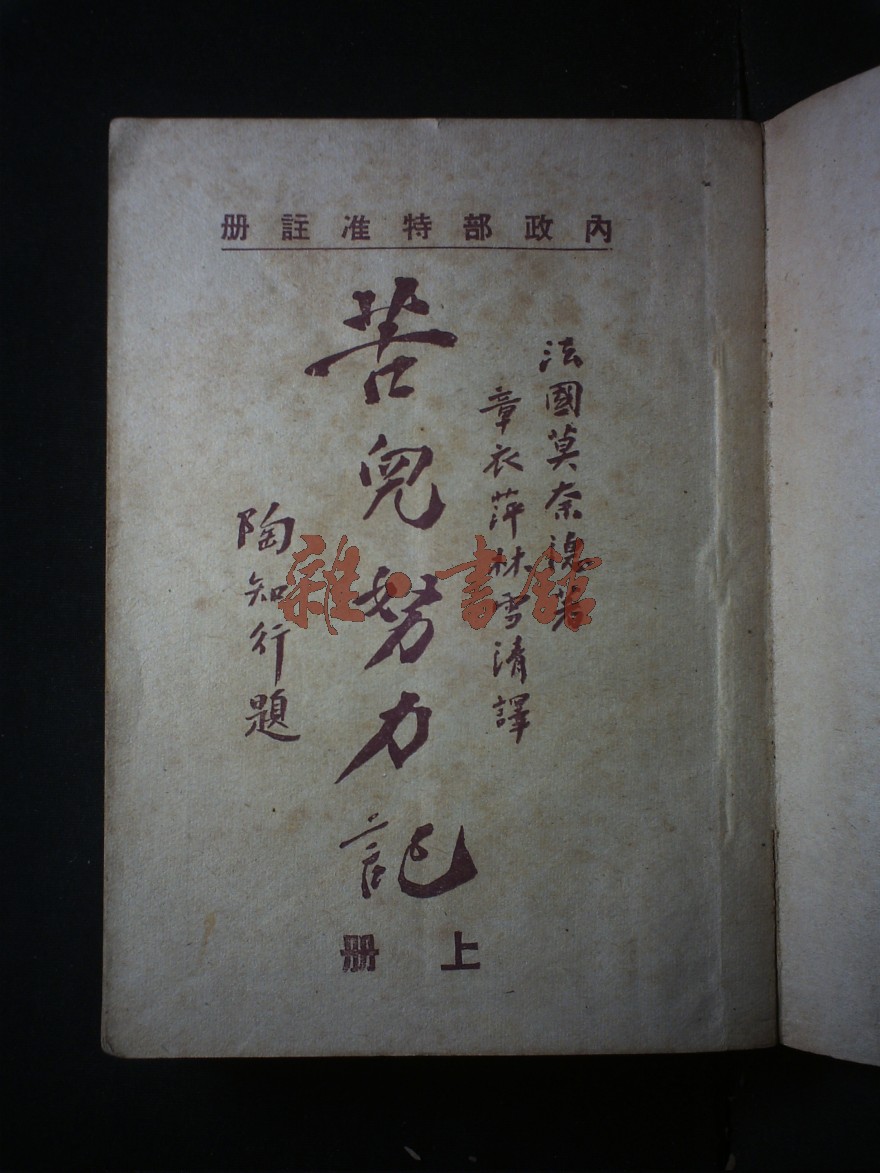 內政部特准註册
法國莫奈德著
章衣萍林雪清譯
苦兒努力記
陶知行題
上册
雜·書館